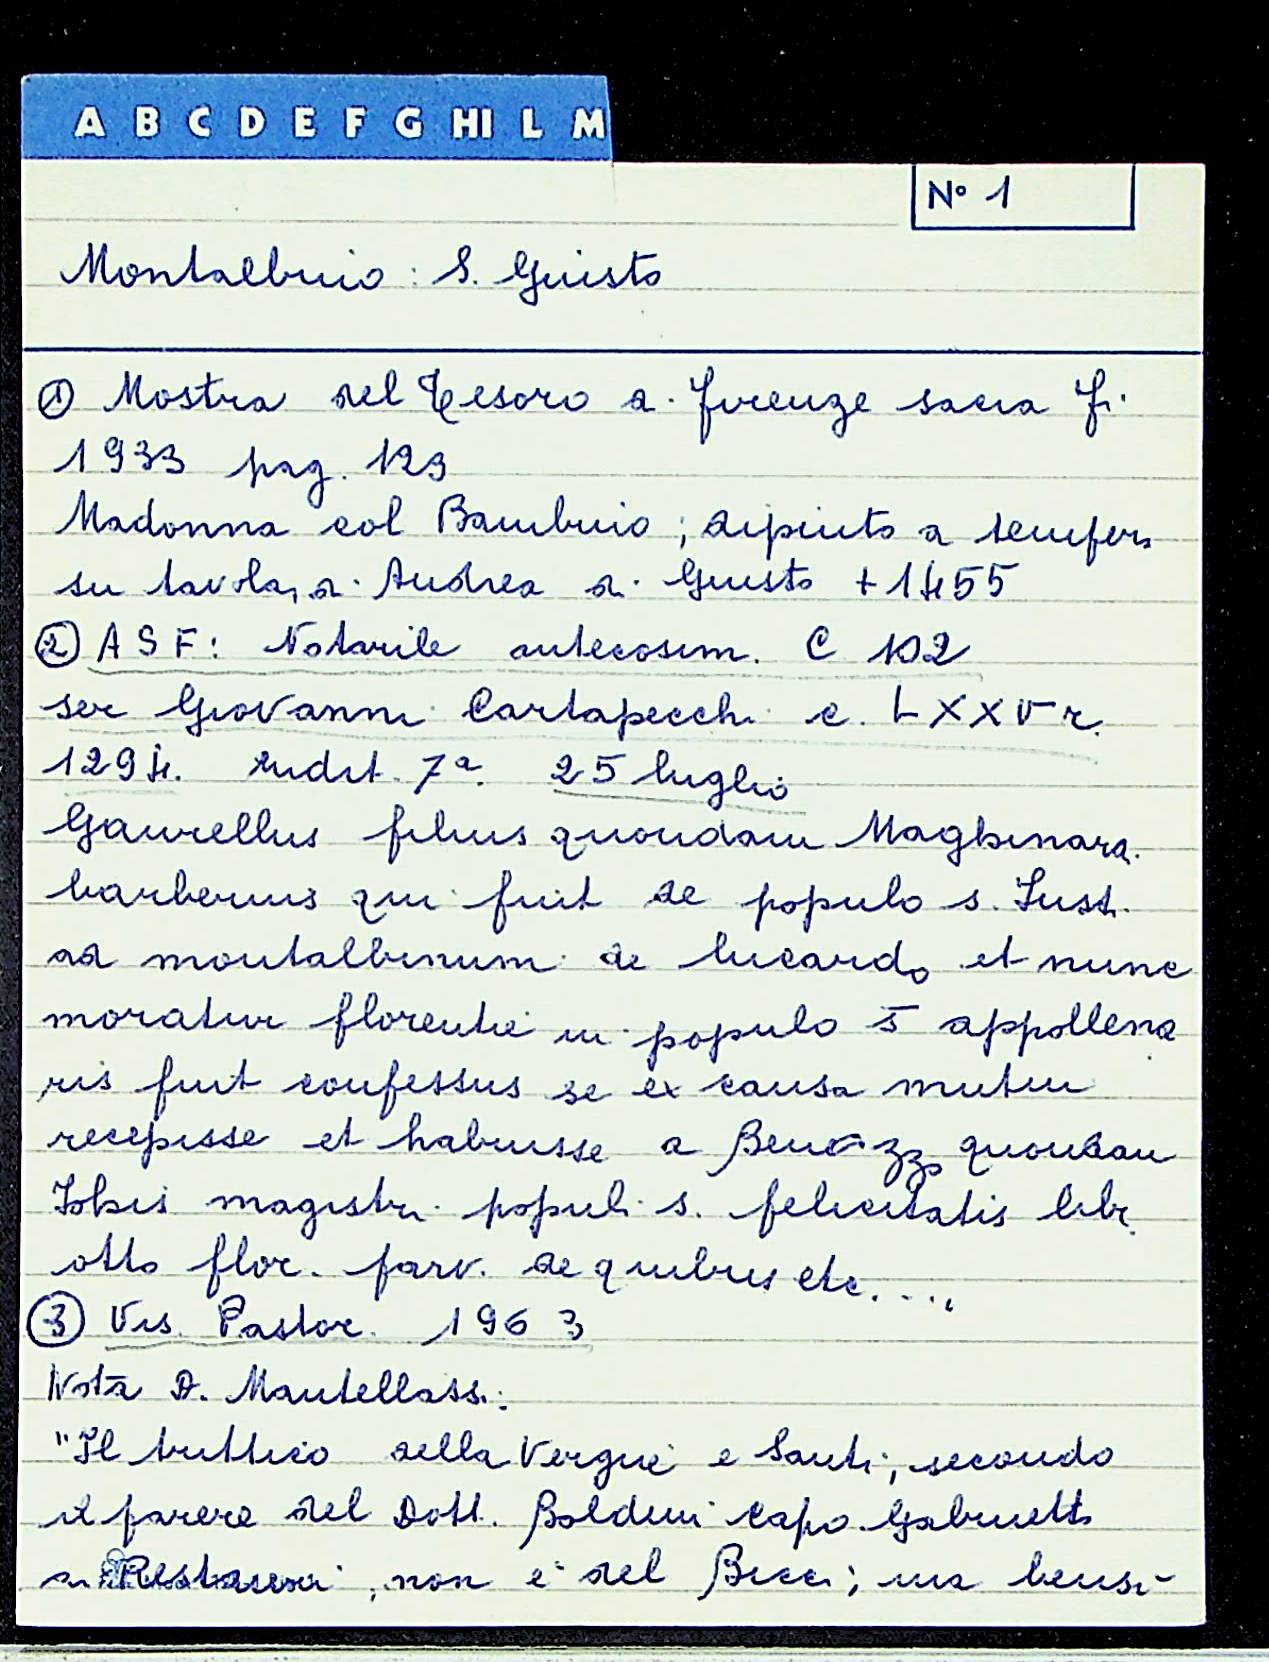 A B C D E F G HI L M
N° 1
Montalbino: S. Giusto
① Mostra del Tesoro di Firenze sacra Fi.
1933 pag. 123
Madonna col Bambino; dipinto a tempera
su tavola, di Andrea di Giusto +1455
② ASF: Notarile antecosim. C 102
ser Giovanni Cartapecchi c. LXXV r.
1294. indit. 7ª. 25 luglio
filius quondam
barberius qui fuit de populo s. Iusti
ad montalbinum de lucardo et nunc
moratur florentie in populo S appollena
ris fuit confessus se ex causa mutui
recepisse et habuisse a quondam
Iohis magistri populi s. felicitatis libr.
otto flor. parv. de quibus etc....
③ Vis. Pastor. 1963
Nota D. Mantellassi:
"Il trittico della Vergine e Santi, secondo
il parere del Dott. Baldini capo Gabinetto
di Restauri, non è del Bicci; ma bensì